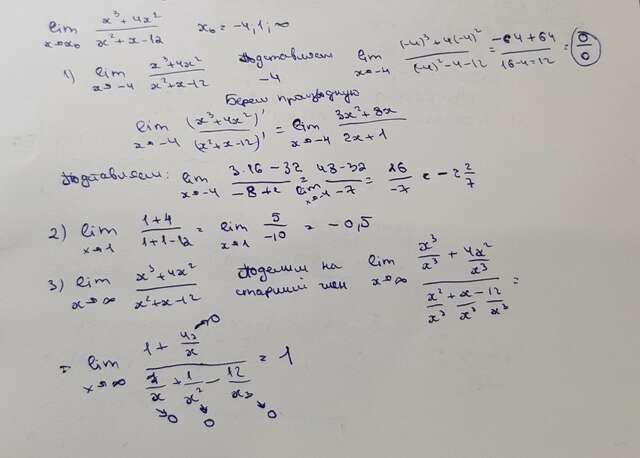 lim x→x₀ (x³+4x²)/(x²+x-12) x₀ = -4, 1; ∞
1) lim x→-4 (x³+4x²)/(x²+x-12) Подставляем -4 lim x→-4 ((-4)³+4(-4)²)/((-4)²-4-12) = (-64+64)/(16-4-12) = (0/0)
Берем производную
lim x→-4 (x³+4x²)'/(x²+x-12)' = lim x→-4 (3x²+8x)/(2x+1)
Подставляем: lim x→-4 (3·16-32)/(-8+1) = lim x→-4 (48-32)/(-7) = 16/(-7) = -2 2/7
2) lim x→1 (1+4)/(1+1-12) = lim x→1 5/(-10) = -0,5
3) lim x→∞ (x³+4x²)/(x²+x-12) Поделим на старший член lim x→∞ (x³/x³ + 4x²/x³)/(x²/x³ + x/x³ - 12/x³) =
= lim x→∞ (1 + 4/x →0)/(1/x →0 + 1/x² →0 - 12/x³ →0) = 1